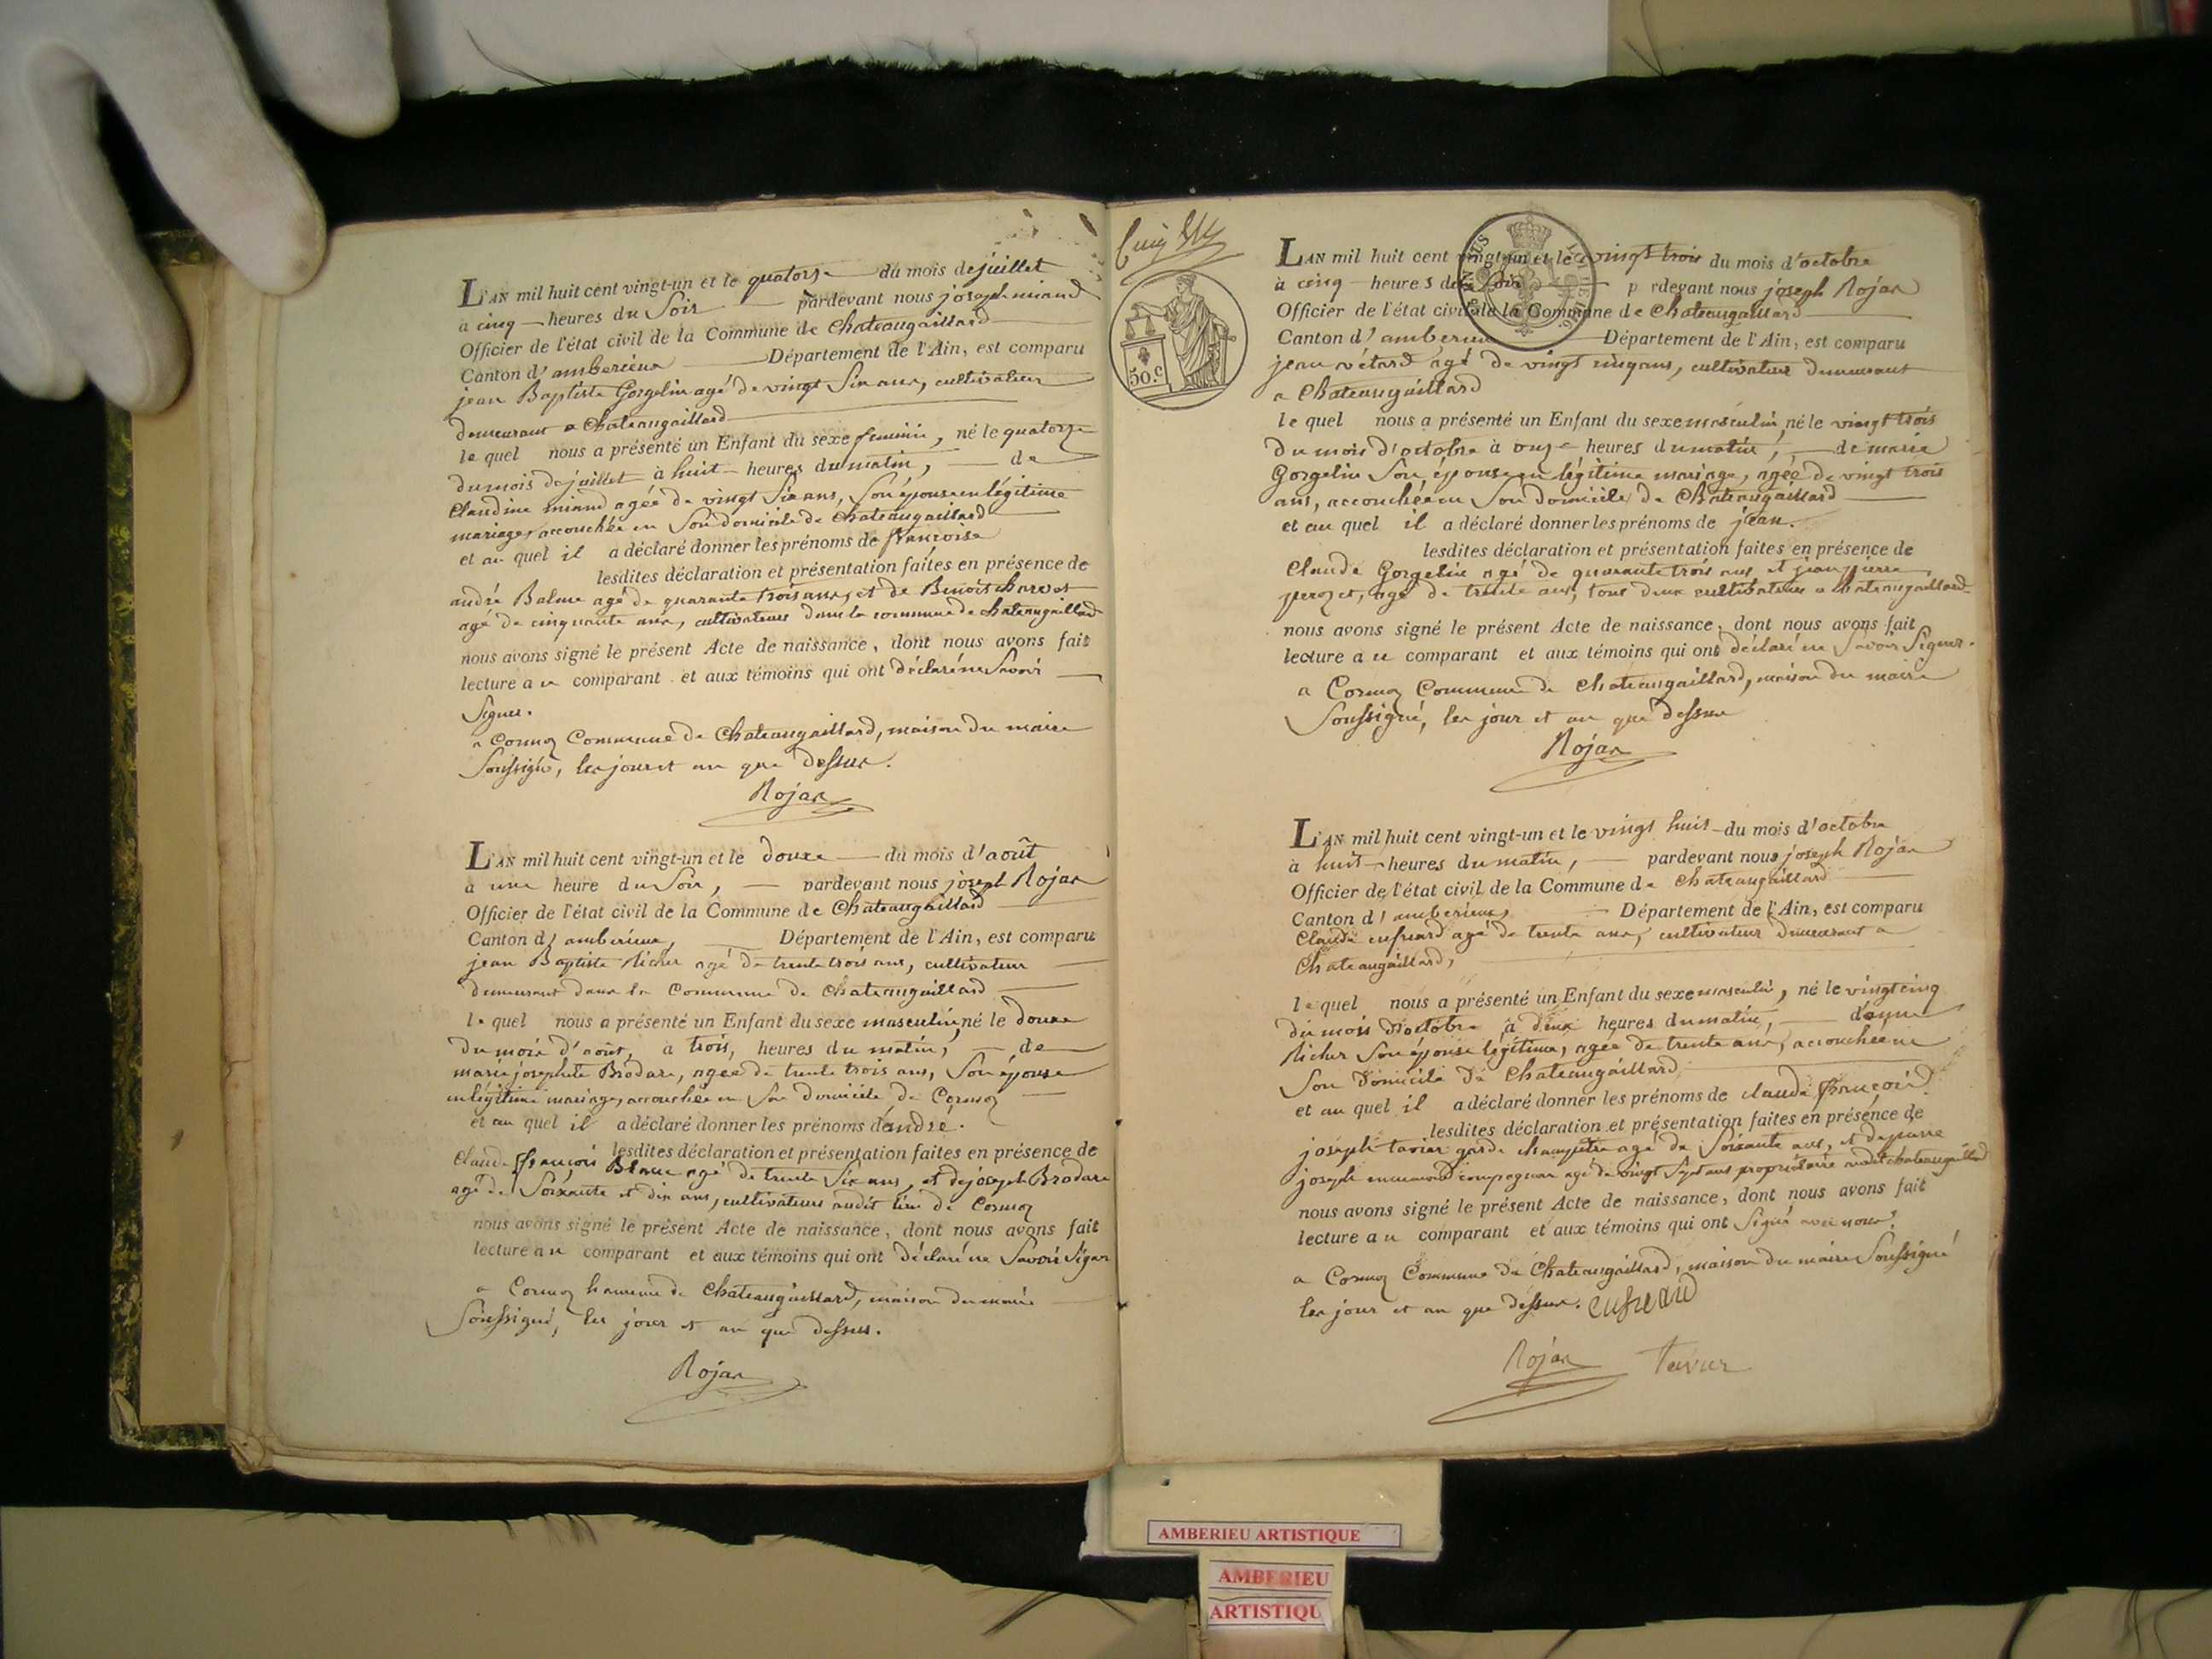 L'AN mil huit cent vingt-un et le quatorze du mois de juillet
à cinq heures du Soir pardevant nous joseph
Officier de l'état civil de la Commune de Chateaugaillard
Canton d'amberieux Département de l'Ain, est comparu
jean Baptiste Gorgelin agé de vingt Six ans, cultivateur
demeurant a Chateaugaillard
le quel nous a présenté un Enfant du sexe feminin, né le quatorze
du mois de juillet à huit heures du matin, de
Claudine miand agée de vingt Six ans, Son épouse en légitime
mariage, accouchée en Son domicile de Chateaugaillard
et au quel il a déclaré donner les prénoms de françoise
lesdites déclaration et présentation faites en présence de
andré Balme agé de quarante trois ans, et de Benoit charvet
agé de cinquante ans, cultivateurs dans la commune de chateaugaillard
nous avons signé le présent Acte de naissance, dont nous avons fait
lecture au comparant et aux témoins qui ont déclaré ne Savoir
Signer.
a Cormoz Commune de Chateaugaillard, maison du maire
Soussigné, les jour et an que dessus.
Rojas
L'AN mil huit cent vingt-un et le douze du mois d'août
à une heure du Soir, pardevant nous joseph Rojas
Officier de l'état civil de la Commune de Chateaugaillard
Canton d'amberieux, Département de l'Ain, est comparu
jean Baptiste Richer agé de trente trois ans, cultivateur
demeurant dans la Commune de Chateaugaillard
le quel nous a présenté un Enfant du sexe masculin, né le douze
du mois d'août, a trois, heures du matin, de
marie josephete Brodare, agée de trente trois ans, Son épouse
en légitime mariage, accouchée en Son domicile de Cormoz
et au quel il a déclaré donner les prénoms d'andré.
lesdites déclaration et présentation faites en présence de
Claude françois Blanc agé de trente Six ans, et de joseph Brodare
agé de Soixante et dix ans, cultivateurs audit lieu de Cormoz
nous avons signé le présent Acte de naissance, dont nous avons fait
lecture au comparant et aux témoins qui ont déclaré ne Savoir Signer
a Cormoz de Chateaugaillard, maison du maire
Soussigné, les jour et an que dessus.
Rojas
50.c
L'AN mil huit cent vingt-un et le vingt trois du mois d'octobre
à cinq heures du Soir p rdevant nous joseph Rojas
Officier de l'état civil de la Commune de Chateaugaillard
Canton d'amberieux Département de l'Ain, est comparu
jean vétard agé de vingt cinq ans, cultivateur demeurant
a Chateaugaillard
le quel nous a présenté un Enfant du sexe masculin, né le vingt trois
du mois d'octobre à onze heures du matin, de marie
Gorgelin Son épouse en légitime mariage, agée de vingt trois
ans, accouchée en Son domicile de Chateaugaillard
et au quel il a déclaré donner les prénoms de jean.
lesdites déclaration et présentation faites en présence de
Claude Gorgelin agé de quarante trois ans et jean pierre
perozet, agé de trente ans, tous deux cultivateurs a chateaugaillard
nous avons signé le présent Acte de naissance, dont nous avons fait
lecture au comparant et aux témoins qui ont déclaré ne Savoir Signer.
a Cormoz Commune de Chateaugaillard, maison du maire
Soussigné, les jour et an que dessus
Rojas
L'AN mil huit cent vingt-un et le vingt huit du mois d'octobre
à huit heures du matin, pardevant nous joseph Rojas
Officier de l'état civil de la Commune de Chateaugaillard
Canton d'amberieux, Département de l'Ain, est comparu
Claude cufreard agé de trente ans, cultivateur demeurant a
Chateaugaillard,
le quel nous a présenté un Enfant du sexe masculin, né le vingt cinq
du mois d'octobre à deux heures du matin, d'anne
Richer Son épouse légitime, agée de trente ans, accouchée en
Son domicile de Chateaugaillard
et au quel il a déclaré donner les prénoms de claude françois
lesdites déclaration et présentation faites en présence de
joseph tavier garde champêtre agé de Soixante ans, et de pierre
joseph compagnon agé de vingt Sept ans propriétaire audit chateaugaillard
nous avons signé le présent Acte de naissance, dont nous avons fait
lecture au comparant et aux témoins qui ont Signé avec nous.
a Cormoz Commune de Chateaugaillard, maison du maire Soussigné
les jour et an que dessus. cufreard
Rojas tavier
AMBERIEU ARTISTIQUE
AMBERIEU
ARTISTIQU